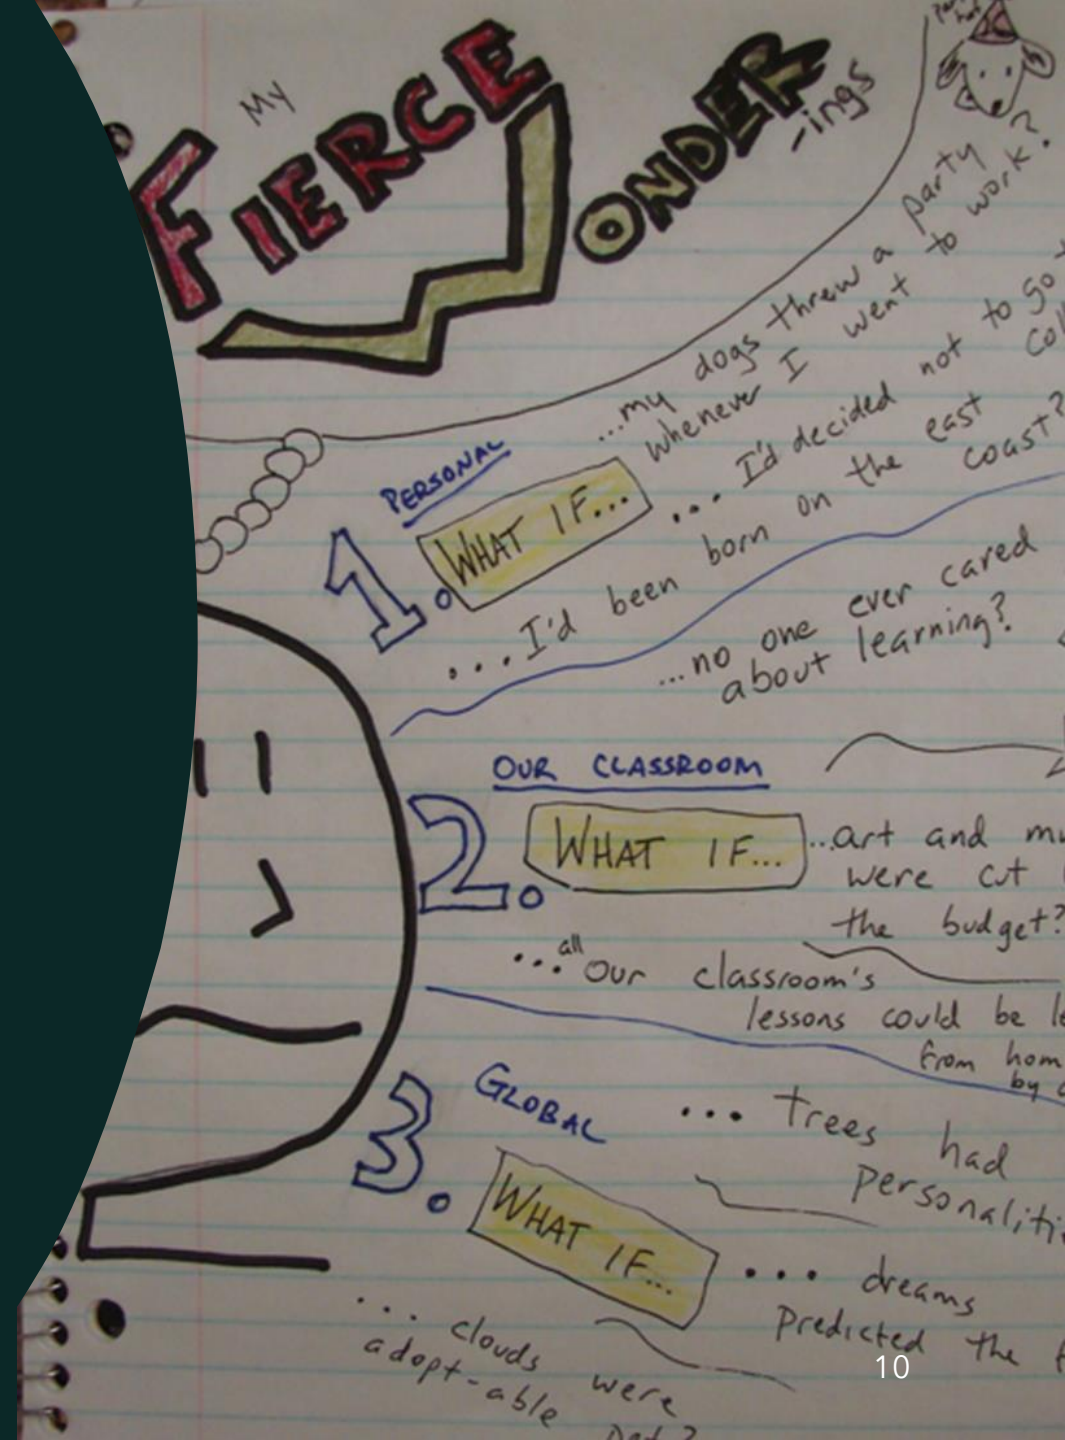 My
FIERCE
WONDER
-ings
...my dogs threw a party
whenever I went to work?
... I'd decided not to go
...I'd been born on the east coast?
PERSONAL
1. WHAT IF...
...no one ever cared
about learning?
OUR CLASSROOM
2. WHAT IF...
...art and
were cut
the budget?
...all our classroom's
lessons could be
from
by
GLOBAL
3. WHAT IF...
... Trees had
... dreams
predicted the
... clouds were
adopt-able
10